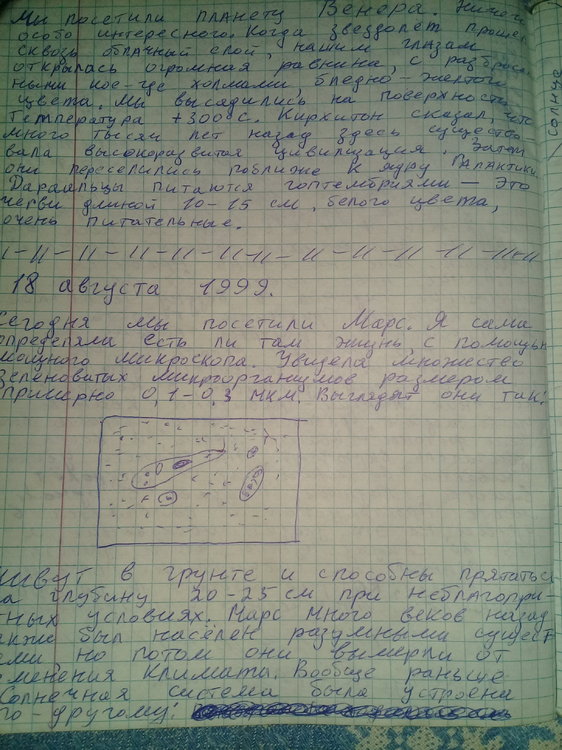 Мы посетили планету Венера. Ничего
особо интересного. Когда звездолет прошел
сквозь облачный слой, нашим глазам
открылась огромная равнина, с разброса
ными кое-где холмами, бледно-желтого
цвета. Мы высадились на поверхность
Температура +300°С. Кирхитон сказал, что
много тысяч лет назад здесь существо
вала высокоразвитая цивилизация. Затем
они переселились поближе к ядру Галактики.
Даральцы питаются гоптембриями — это
черви длиной 10-15 см, белого цвета,
очень питательные.
18 августа 1999.
Сегодня мы посетили Марс. Я сама
определяла есть ли там жизнь с помощью
мощного микроскопа. Увидела множество
зеленоватых микроорганизмов размером
примерно 0,1-0,3 мкм. Выглядят они так:
Живут в грунте и способны прятаться
на глубину 20-25 см при неблагопри-
тных условиях. Марс много веков назад
также был населён разумными сущест
ами но потом они вымерли от
менения климата. Вообще раньше
Солнечная система была устроена
по-другому:
солнце